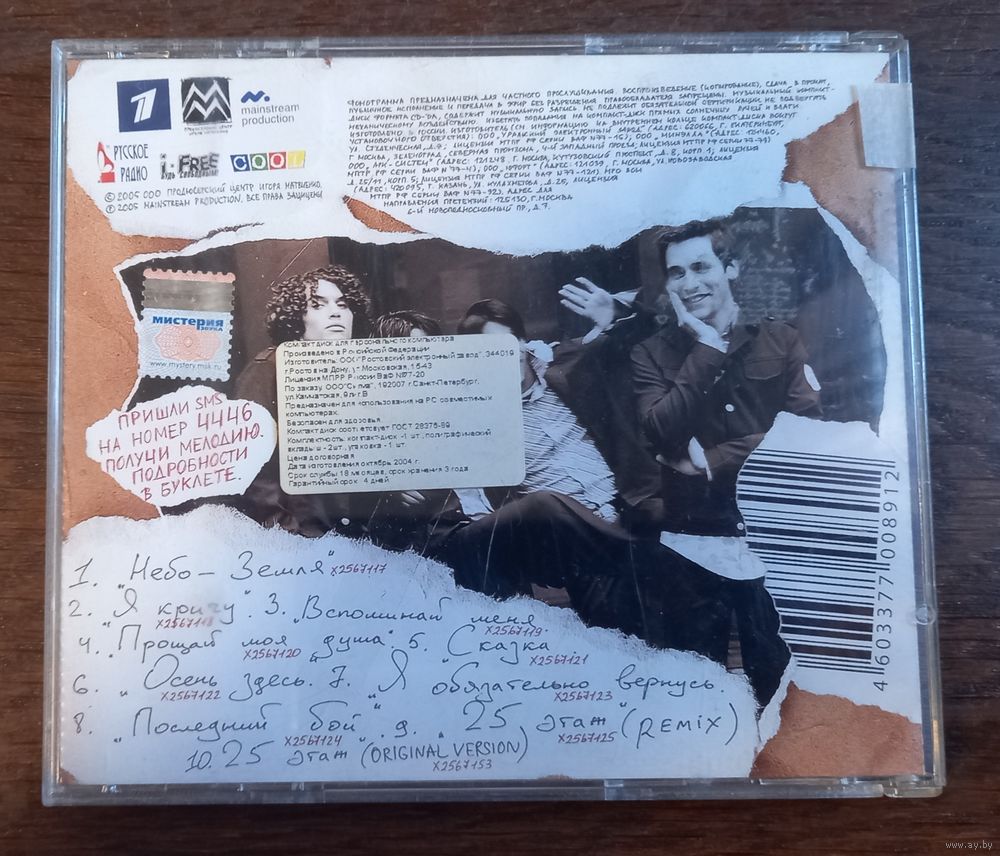 1
M
mainstream
production
РУССКОЕ
РАДИО
FREE
COOL
℗ 2005 ООО ПРОДЮСЕРСКИЙ ЦЕНТР ИГОРЯ МАТВИЕНКО.
℗ 2005 MAINSTREAM PRODUCTION. ВСЕ ПРАВА ЗАЩИЩЕНЫ
ФОНОГРАММА ПРЕДНАЗНАЧЕНА ДЛЯ ЧАСТНОГО ПРОСЛУШИВАНИЯ. ВОСПРОИЗВЕДЕНИЕ (КОПИРОВАНИЕ), СДАЧА В ПРОКАТ,
ПУБЛИЧНОЕ ИСПОЛНЕНИЕ И ПЕРЕДАЧА В ЭФИР БЕЗ РАЗРЕШЕНИЯ ПРАВООБЛАДАТЕЛЯ ЗАПРЕЩЕНЫ. МУЗЫКАЛЬНЫЙ КОМПАКТ-
ДИСК ФОРМАТА CD-DA, СОДЕРЖИТ МУЗЫКАЛЬНУЮ ЗАПИСЬ. НЕ ПОДЛЕЖИТ ОБЯЗАТЕЛЬНОЙ СЕРТИФИКАЦИИ. НЕ ПОДВЕРГАТЬ
МЕХАНИЧЕСКОМУ ВОЗДЕЙСТВИЮ. ИЗБЕГАТЬ ПОПАДАНИЯ НА КОМПАКТ-ДИСК ПРЯМЫХ СОЛНЕЧНЫХ ЛУЧЕЙ И ВЛАГИ
ИЗГОТОВЛЕНО В РОССИИ. ИЗГОТОВИТЕЛЬ (СМ. ИНФОРМАЦИЮ НА ВНУТРЕННЕМ КОЛЬЦЕ КОМПАКТ-ДИСКА ВОКРУГ
УСТАНОВОЧНОГО ОТВЕРСТИЯ): ООО "УРАЛЬСКИЙ ЭЛЕКТРОННЫЙ ЗАВОД" (АДРЕС: 620066, Г. ЕКАТЕРИНБУРГ,
НАПРАВЛЕНИЯ ПРЕТЕНЗИЙ: 125130, Г. МОСКВА
6-Й НОВОПОДМОСКОВНЫЙ ПР., Д.7.
мистерия
звука
www.mystery.msk.ru
ПРИШЛИ SMS
НА НОМЕР 4446
ПОЛУЧИ МЕЛОДИЮ.
ПОДРОБНОСТИ
В БУКЛЕТЕ.
Компакт диск для персонального компьютера
Произведено в Российской Федерации
Изготовитель: ООО "Ростовский электронный завод", 344019
г.Ростов на Дону, ул Московская, 15-43
Лицензия МПРР России ВаФ №77-20
По заказу ООО 192007 г.Санкт-Петербург,
ул.Камчатская, 9
Предназначен для использования на РС совместимых
компьютерах.
Безопасен для здоровья
Компакт диск соответсвует ГОСТ 28376-89
Комплектность: компакт-диск -1 шт., полиграфический
вкладыш - 2шт., упаковка - 1 шт.
Цена договорная
Дата изготовления октябрь 2004 г.
Срок службы 18 месяцев, срок хранения 3 года
Гарантийный срок 4 дней
1. „Небо – Земля" X2567117
2. „Я кричу" 3. „Вспоминай меня
X2567118 X2567119
4. „Прощай моя душа". 5. „Сказка
X2567120 X2567121
6. „Осень здесь. 7. „Я обязательно вернусь.
X2567122 X2567123
8. „Последний бой" 9. „25 этаж (REMIX)
X2567124 X2567125
10. 25 этаж (ORIGINAL VERSION)
X2567153
4 603377 008912
www.ay.by